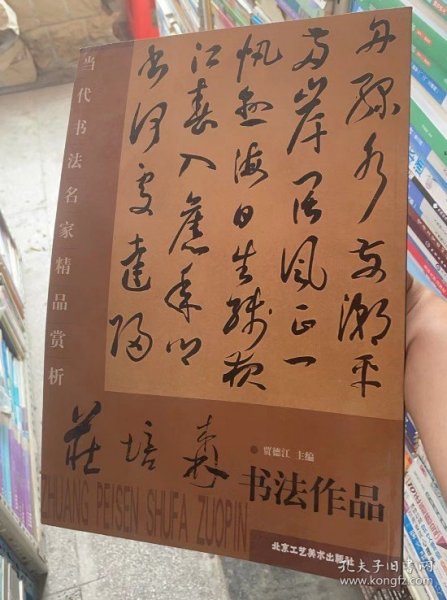 当代书法名家精品赏析
舟绿水前潮平
两岸阔风正一
帆悬海日生残夜
江春入旧年乡
书何处达归
莊培森
贾德江 主编
书法作品
ZHUANG PEISEN SHUFA ZUOPIN
北京工艺美术出版社
孔夫子旧书网
www.kongfz.com